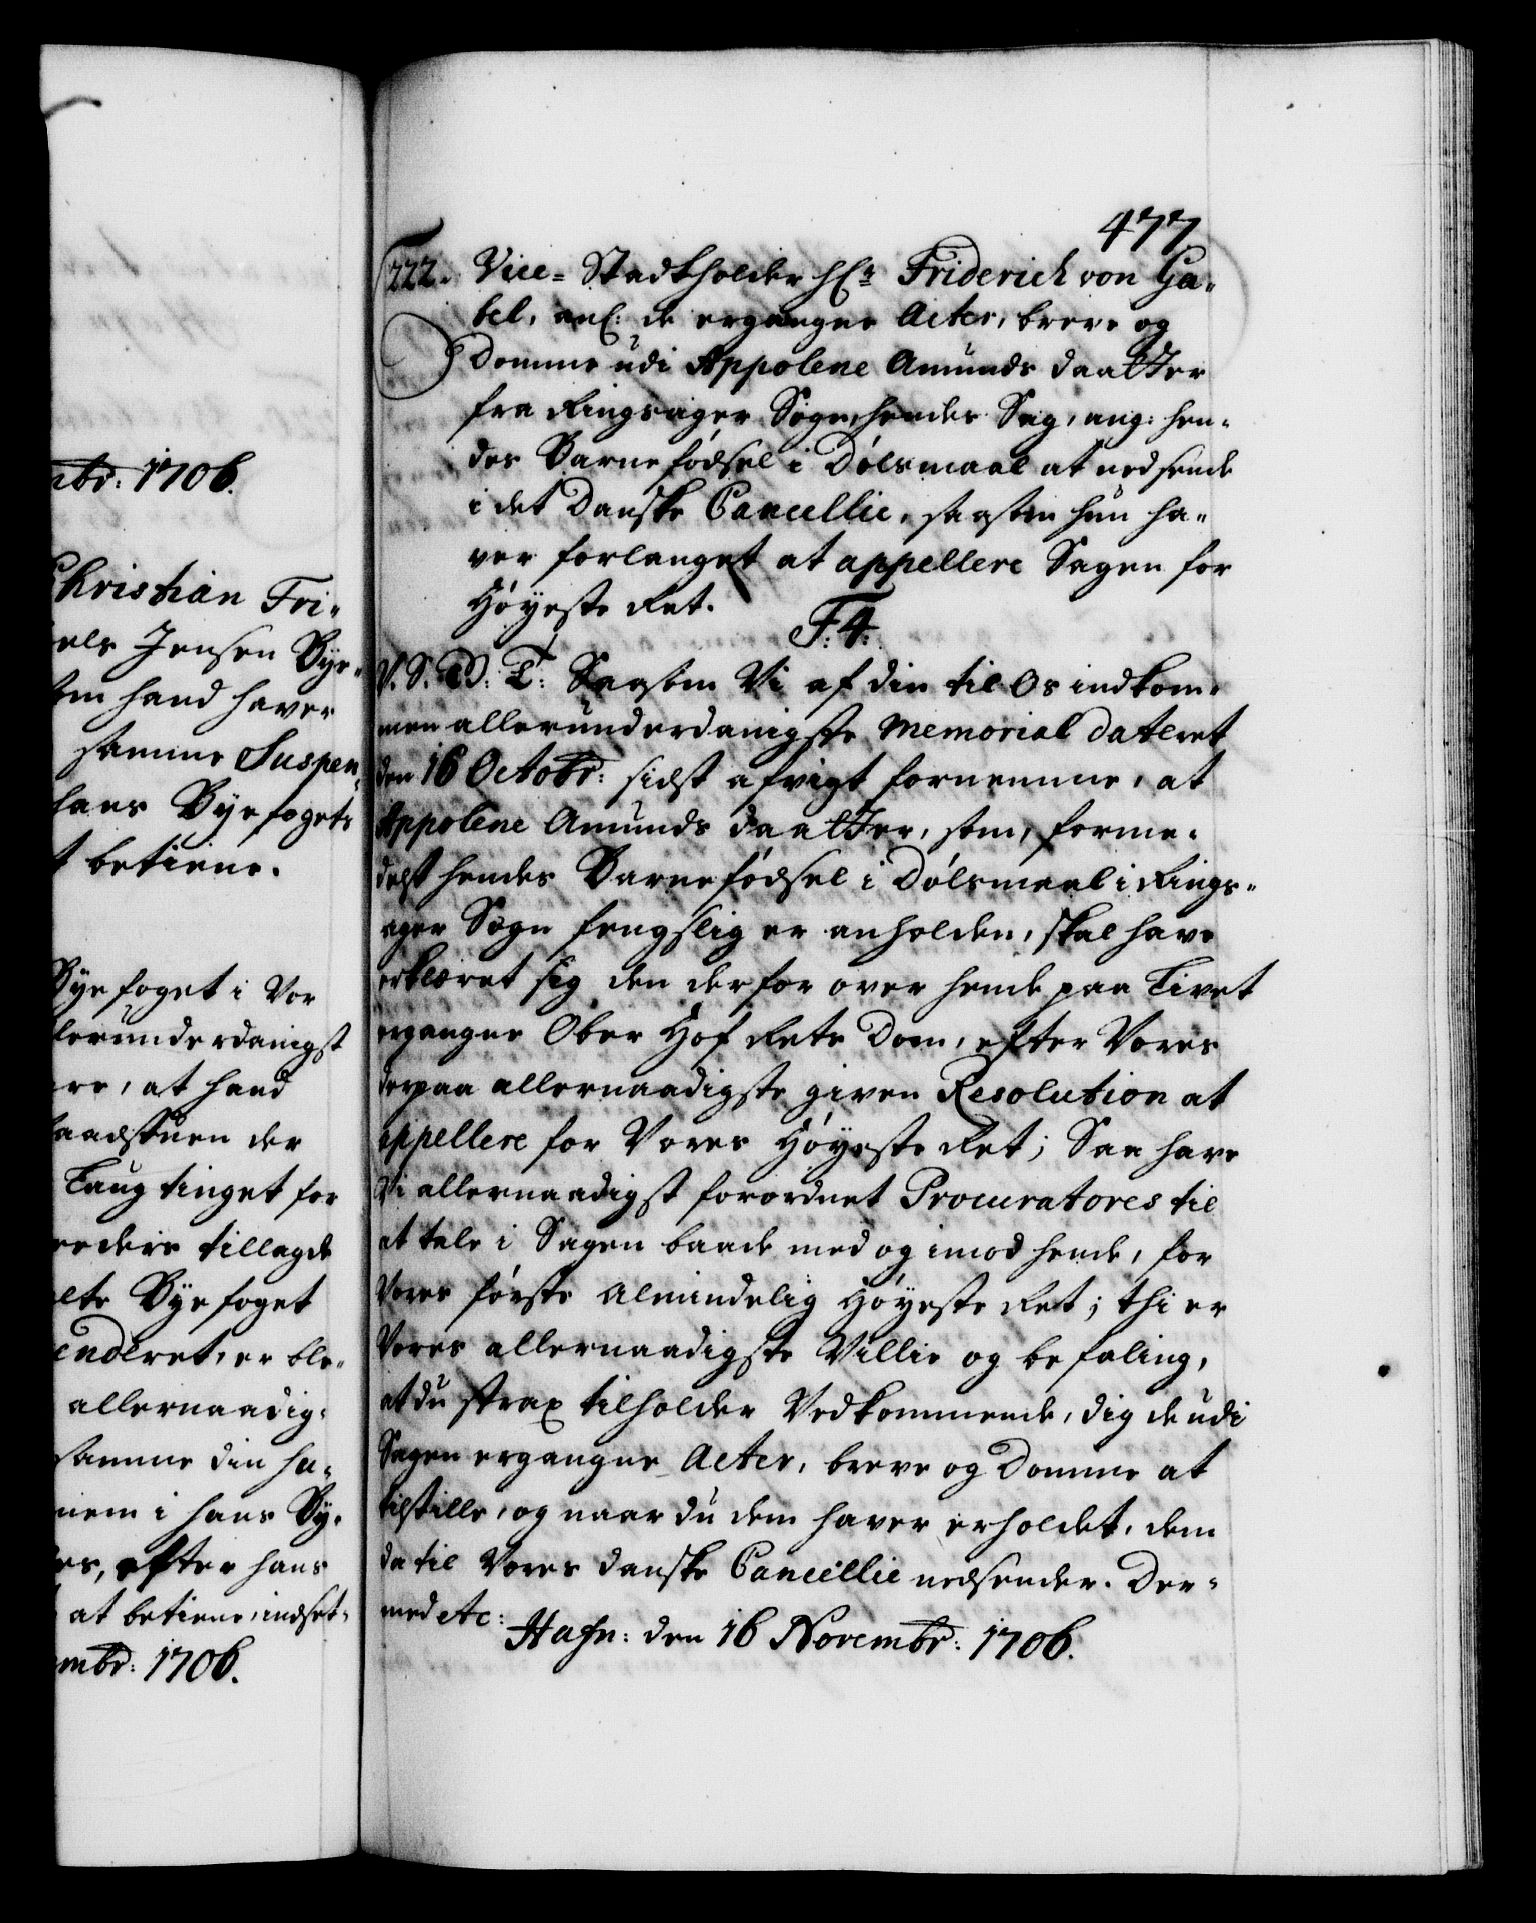 mbr: 1706.
Christian Fri-
els Jensen Bye-
som hand haver
samme Suspen-
hans Byefogets
t betiene.
Byefoget i Vor
lerunderdanigst
ere, at hand
Raadstuen der
Laugtinget for
eedere tillagde
elte Byefoget
enderet, er ble-
allernaadig-
samme din ha-
nem i hans By-
es, efter hans
at betiene, indset-
embr: 1706.
477
222. Vice-Stadtholder Hr. Friderich von Ga-
bel, anl: de ergangne Acter, breve og
Domme udi Appolene Amunds daatter
fra Ringsager Sogn, hendes Sag, ang: hen-
des Barnefødsel i Dølsmaal at nedsende
i det Danske Cancellie, saasom hun ha-
ver forlanget at appellere Sagen for
Høyeste Ret.
F: 4.
V. S. G: T: Saasom Vi af din til Os indkom-
men allerunderdanigste Memorial dateret
den 16 Octobr: sidst afvigt fornemme, at
Appolene Amunds daatter, som, forme-
delst hendes Barnefødsel i Dølsmaal i Rings-
ager Sogn fengslig er anholden, skal have
erklæret sig den derfor over hende paa Livet
ergangne Ober Hof Rets Dom, efter Vores
derpaa allernaadigste given Resolution at
appellere for Vores Høyeste Ret; Saa have
Vi allernaadigst forordnet Procuratores til
at tale i Sagen baade med og imod hende, for
Vores første Almindelig Høyeste Ret; thi er
Vores allernaadigste Villie og befaling,
at du strax tilholder Vedkommende, dig de udi
Sagen ergangne Acter, breve og Domme at
tilstille, og naar du dem haver erholdet, dem
da til Vores danske Cancellie nedsender. Der-
med etc:
Hafn: den 16 Novembr: 1706.